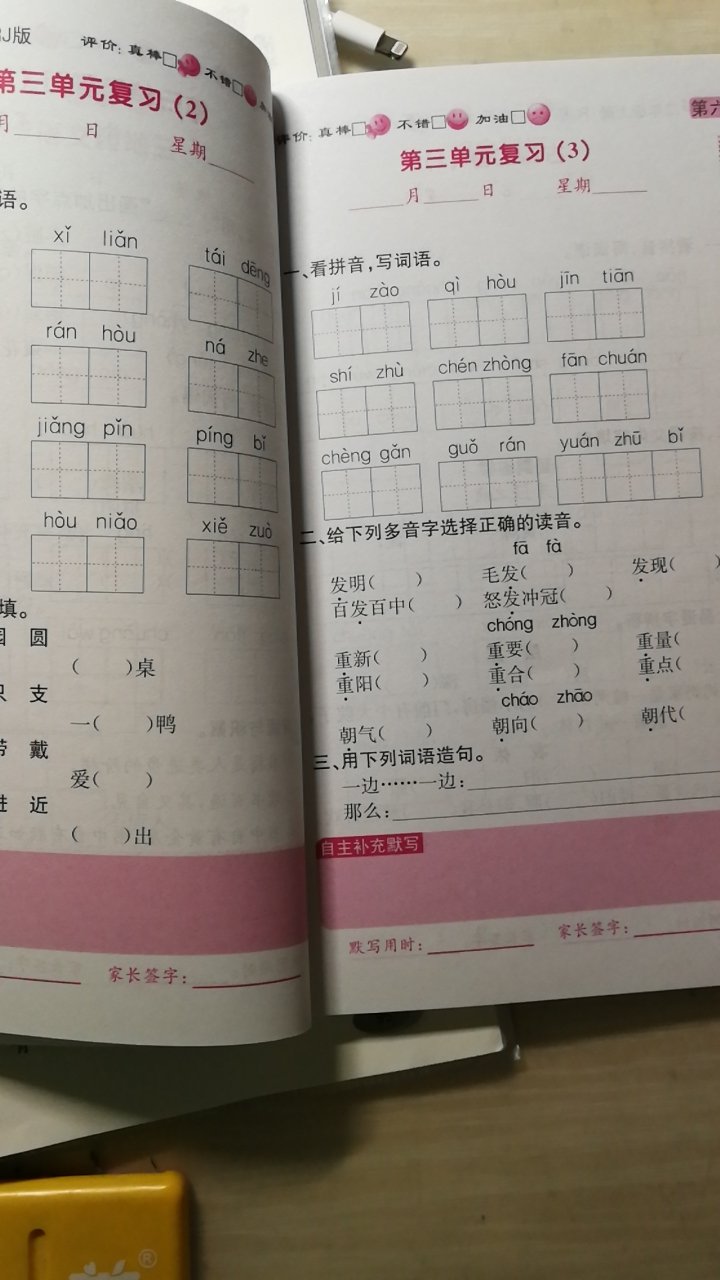 RJ版
评价:真棒□ 不错□
第三单元复习(2)
月______日 星期______
语。
xǐ liǎn tái dēng
rán hòu ná zhe
jiǎng pǐn píng bǐ
hòu niǎo xiě zuò
填。
园 圆
( )桌
只 支
一( )鸭
带 戴
爱( )
进 近
( )出
家长签字:
评价:真棒□ 不错□ 加油□
第三单元复习(3)
______月______日 星期______
一、看拼音,写词语。
jí zào qì hòu jīn tiān
shí zhù chén zhòng fān chuán
chèng gǎn guǒ rán yuán zhū bǐ
二、给下列多音字选择正确的读音。
fā fà
发明( ) 毛发( ) 发现( )
百发百中( ) 怒发冲冠( )
chóng zhòng
重新( ) 重要( ) 重量(
重阳( ) 重合( ) 重点(
cháo zhāo
朝气( ) 朝向( ) 朝代(
三、用下列词语造句。
一边……一边:
那么:
自主补充默写
默写用时: 家长签字:
第六
®